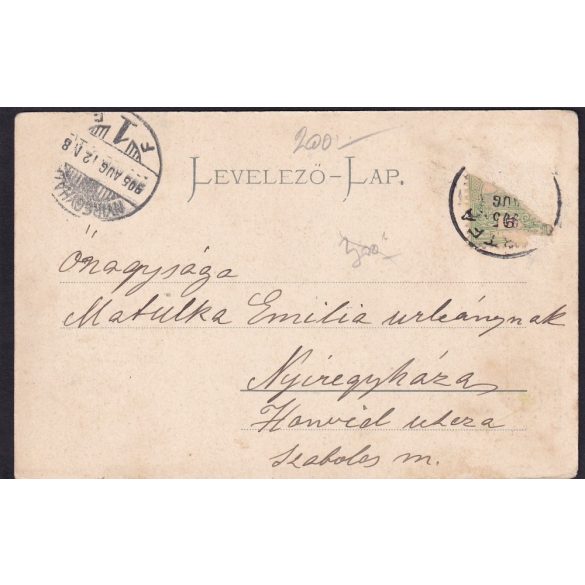 200.-
LEVELEZŐ-LAP.
NYIREGYHÁZA
905 AUG 12 D.8
F 1
RTFA
905
AUG
Őnagysága
Matulka Emilia urleánynak
Nyiregyházas
Honvéd utcza
Szabolcs m.